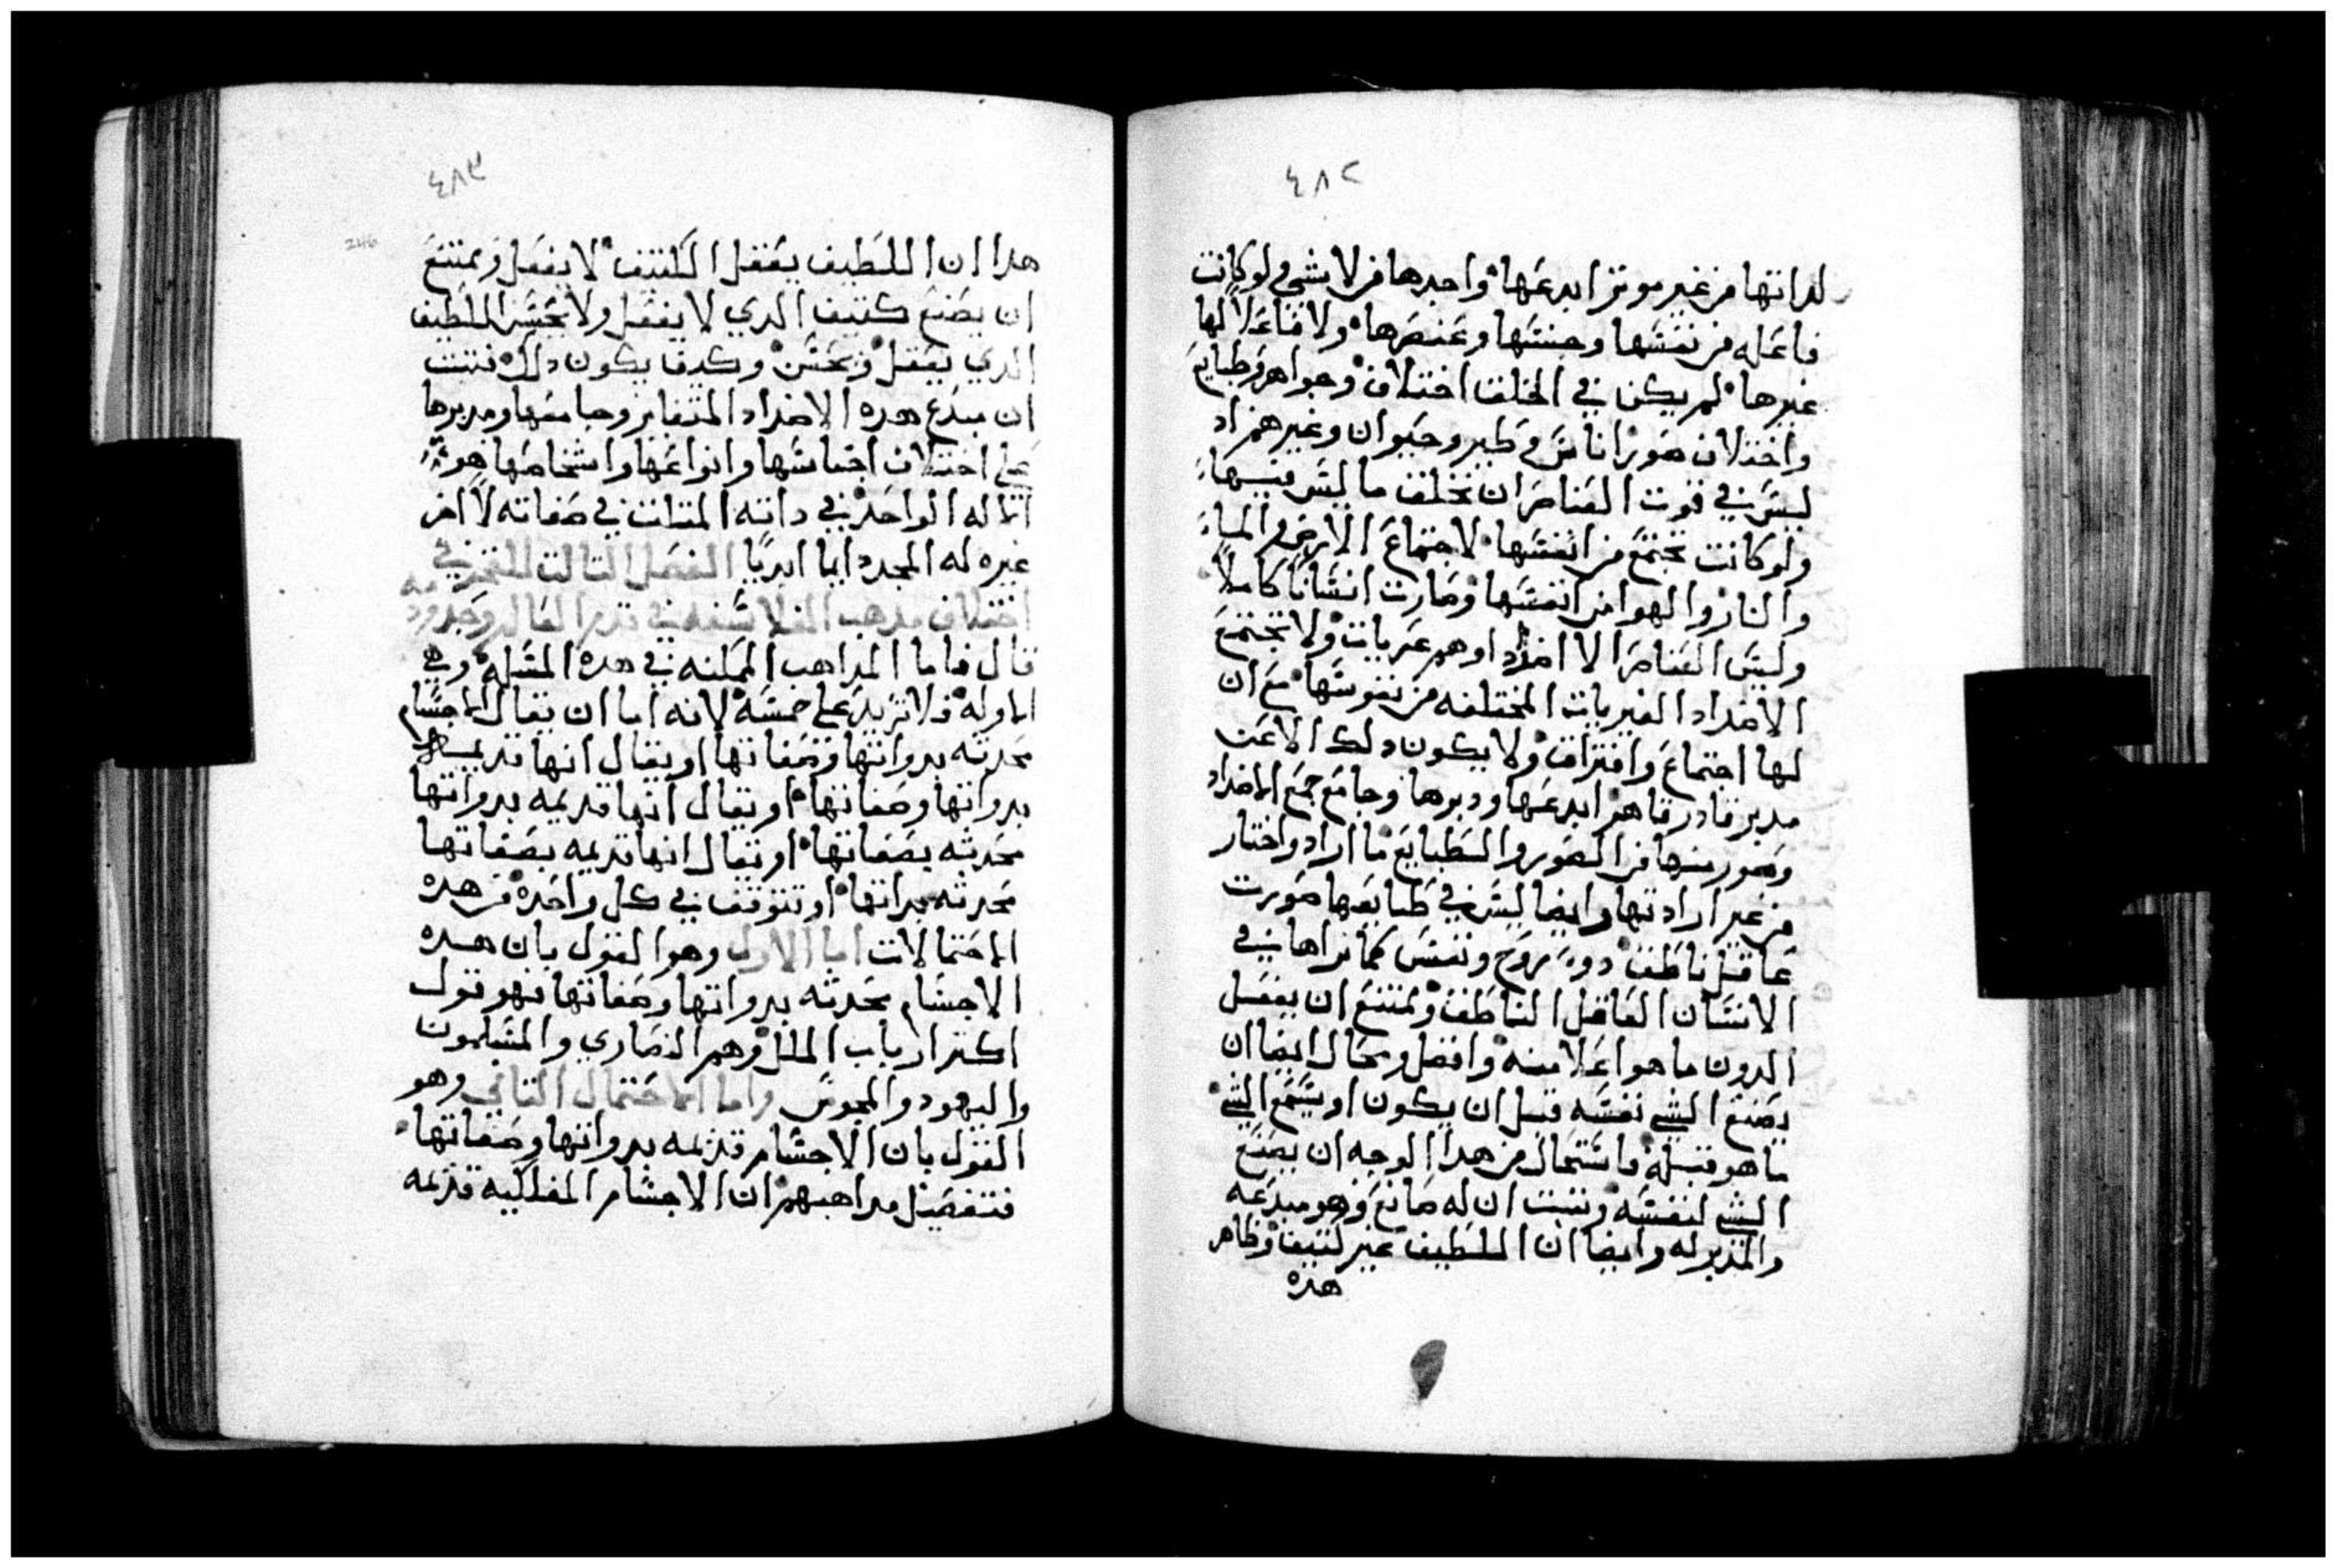 ٤٨٢
لداتها من غير موتر ابدعها واحدها من لا شي ولو كانت
فاعله من نفسها وجنسها وعنصرها ولا فاعلا لها
غيرها لم يكن في الخلف اختلاف وجواهر وطبايع
واختلاف صور اناس وطير وحيوان وغيرهم اد
ليس في قوت العناصر ان تخلف ما ليس فيها
ولو كانت تجتمع من انفسها لاجتماع الارض والماء
والنار والهوا من انفسها وصارت انسانا كاملا
وليس العناصر الا اضداد اوهم غيريات ولا تجتمع
الاضداد الغيريات المختلفه من نفوسها مع ان
لها اجتماع وافتراق ولا يكون دلك الا عن
مدبر قادر قاهر ابدعها ودبرها وجامع جمع الاضداد
وصور منها من الصور والطبايع ما اراد واختار
من غير ارادتها وايضا ليس في طبايعها صورت
عاقل ناطق دو روح ونفس كما نراها في
الانسان العاقل الناطق ويمتنع ان يفعل
الدون ما هو اعلا منه وافضل ومحال ايضا ان
يصنع الشي نفسه قبل ان يكون او يسمع الشي
ما هو قبله فاستحال من هدا الوجه ان يصنع
الشي لنفسه وتبت ان له صانع وهو مبدعه
والمدبر له وايضا ان اللطيف غير كتيف وظاهر
هده
٤٨٣
246
هدا ان اللطيف يعقل الكتيف لا يعقل ويمتنع
ان يصنع كتيف الدي لا يعقل ولا يحس اللطيف
الدي يعقل ويحس وكيف يكون دلك فتبت
ان مبدع هده الاضداد المتغاير وجامعها ومدبرها
على اختلاف اجناسها وانواعها واشخاصها هو
الاله الواحد في داته المتلت في صفاته لا اخر
غيره له المجد دايما ابديا الفصل التالت
اختلاف مدهب الفلاسفه في قدم العالم وحدوده
قال فاما المداهب الممكنه في هده المسله وهي
الاوله فلا تزيد على خمسه لانه اما ان يقال الاجسام
محدته بدواتها وصفاتها او يقال انها قديمه
بدواتها وصفاتها او يقال انها قديمه بدواتها
محدته بصفاتها او يقال انها قديمه بصفاتها
محدته بداتها او تتوقف في كل واحده من هده
الاحتمالات اما الاول وهو القول بان هده
الاجسام محدته بدواتها وصفاتها فهو قول
اكتر ارباب الملل وهم النصاري والمسلمون
واليهود والمجوس واما الاحتمال التاني وهو
القول بان الاجسام قديمه بدواتها وصفاتها
فتفصيل مداهبهم ان الاجسام الفلكيه قديمه